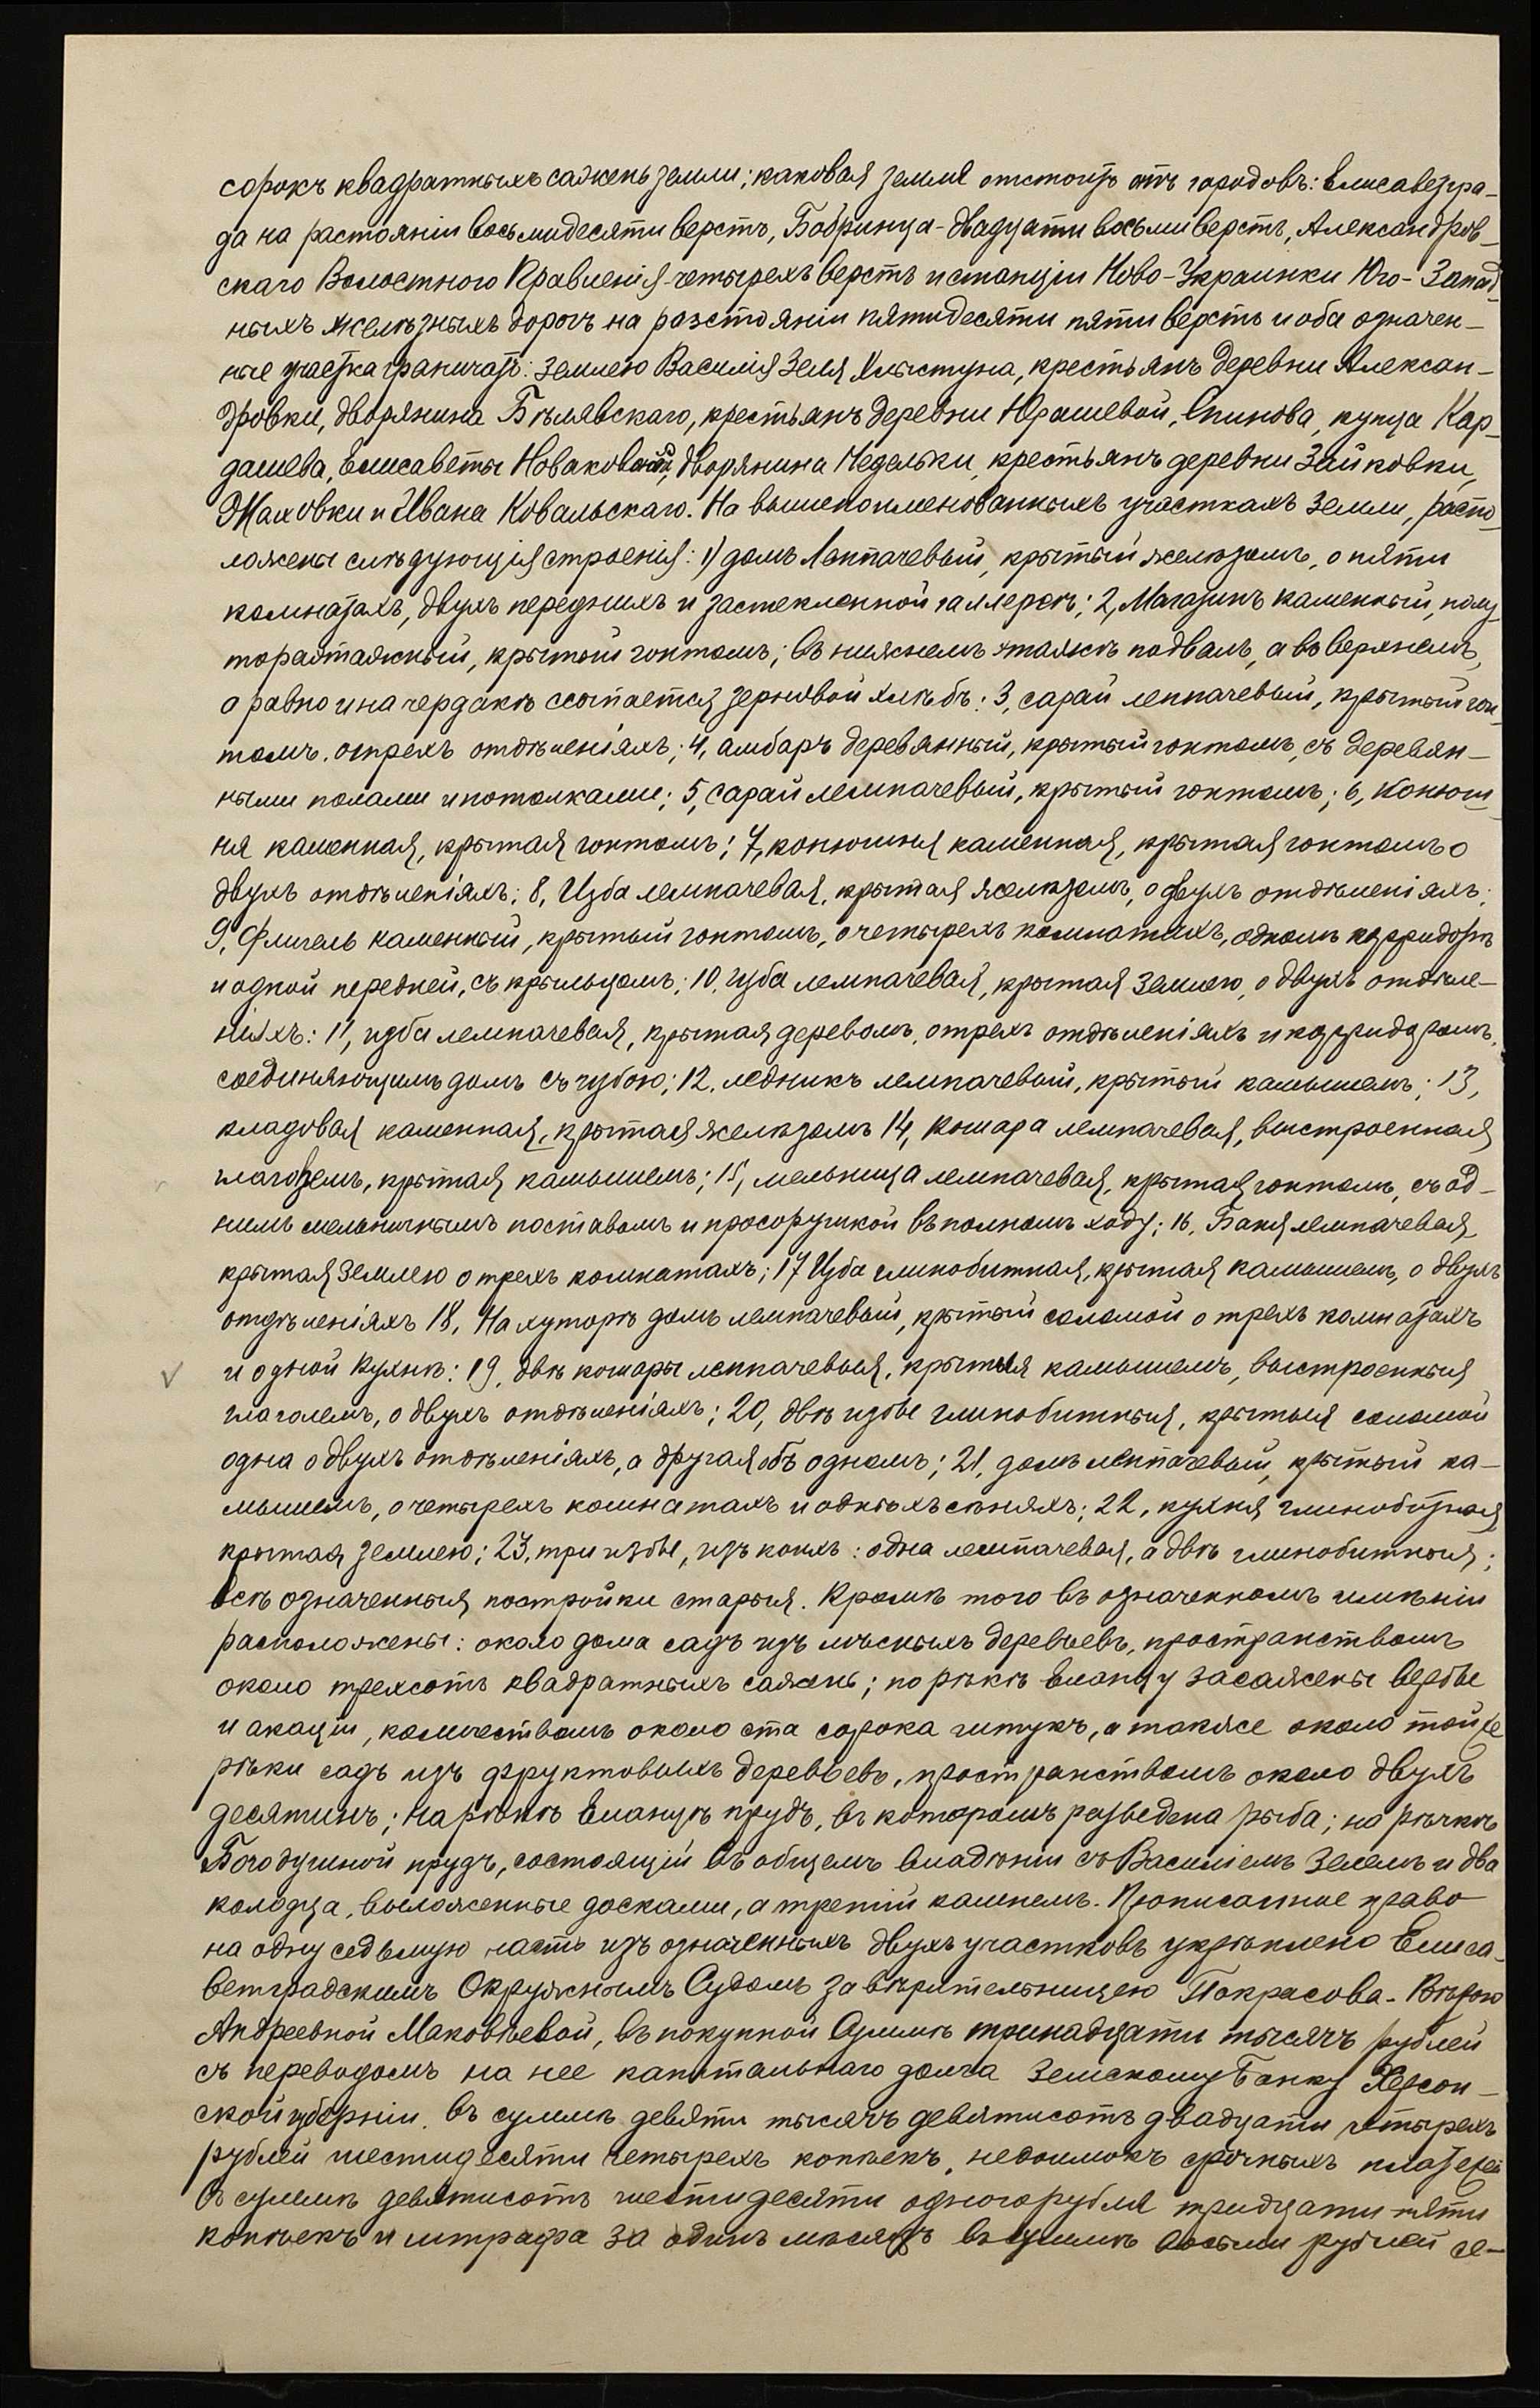 сорокъ квадратныхъ саженъ земли; каковая земля отстоитъ отъ городовъ: Елисаветгра-
да на растояніи восьмидесяти верстъ, Бобринца - двадцати восьми верстъ, Александров-
скаго Волостного Правленія - четырехъ верстъ и станціи Ново-Украинки Юго-Запад-
ныхъ желѣзныхъ дорогъ на разстояніи пятидесяти пяти верстъ и оба означен-
ные участка граничатъ: землею Василія Зеля Хлыстуна, крестьянъ деревни Алексан-
дровки, дворянина Бѣлявскаго, крестьянъ деревни Юрашевой, Спинова, купца Кар-
дашева, Елисаветы Новаковой, дворянина Недельки, крестьянъ деревни Зайковки,
Маховки и Ивана Ковальскаго. На вышепоименованныхъ участкахъ земли, распо-
ложены слѣдующія строенія: 1) домъ лемпачевый, крытый желѣзомъ, о пяти
комнатахъ, двухъ переднихъ и застекленной галлереѣ; 2, Магазинъ каменный, полу-
тораэтажный, крытый гонтомъ; въ нижнемъ этажѣ подвалъ, а въ верхнемъ,
а равно и на чердакѣ ссыпается зерновой хлѣбъ; 3, сарай лемпачевый, крытый гон-
томъ, о трехъ отдѣленіяхъ; 4, амбаръ деревянный, крытый гонтомъ, съ деревян-
ными полами и потолками; 5, сарай лемпачевый, крытый гонтомъ; 6, конюш-
ня каменная, крытая гонтомъ; 7, конюшня каменная, крытая гонтомъ о
двухъ отдѣленіяхъ; 8, Изба лемпачевая, крытая желѣзомъ, о двухъ отдѣленіяхъ;
9, Флигель каменный, крытый гонтомъ, о четырехъ комнатахъ, одномъ корридорѣ
и одной передней, съ крыльцомъ; 10, изба лемпачевая, крытая землею, о двухъ отдѣле-
ніяхъ; 11, изба лемпачевая, крытая деревомъ, о трехъ отдѣленіяхъ и корридоромъ,
соединяющимъ домъ съ избою; 12, ледникъ лемпачевый, крытый камышемъ; 13,
кладовая каменная, крытая желѣзомъ 14, Кошара лемпачевая, выстроенная
глаголемъ, крытая камышемъ; 15, мельница лемпачевая, крытая гонтомъ, съ од-
нимъ мельничнымъ поставомъ и просорушкой въ полномъ ходу; 16, Баня лемпачевая,
крытая землею о трехъ комнатахъ; 17 Изба глинобитная, крытая камышемъ, о двухъ
отдѣленіяхъ 18, На хуторѣ домъ лемпачевый, крытый соломой о трехъ комнатахъ
и одной кухнѣ; 19, двѣ кошары лемпачевыя, крытыя камышемъ, выстроенныя
глаголемъ, о двухъ отдѣленіяхъ; 20, двѣ избы глинобитныя, крытыя соломой
одна о двухъ отдѣленіяхъ, а другая объ одномъ; 21, домъ лемпачевый, крытый ка-
мышемъ, о четырехъ комнатахъ и однѣхъ сѣняхъ; 22, кухня глинобитная
крытая землею; 23, три избы, изъ коихъ: одна лемпачевая, а двѣ глинобитныя;
всѣ означенныя постройки старыя. Кромѣ того въ означенномъ имѣніи
расположены: около дома садъ изъ лѣсныхъ деревьевъ, пространствомъ
около трехсотъ квадратныхъ сажень; по рѣкѣ Еланцу засажены вербы
и акаціи, количествомъ около ста сорока штукъ, а также около той же
рѣки садъ изъ фруктовыхъ деревьевъ, пространствомъ около двухъ
десятинъ; на рѣкѣ Еланцѣ прудъ, въ которомъ разведена рыба; на рѣчкѣ
Богодушной прудъ, состоящій въ общемъ владѣніи съ Василіемъ Зелемъ и два
колодца, выложенные досками, а третій камнемъ. Прописанное право
на одну седьмую часть изъ означенныхъ двухъ участковъ укрѣплено Елиса-
ветградскимъ Окружнымъ Судомъ за вѣрительницею Покрасова - Вѣрою
Андреевной Маковѣевой, въ покупной суммѣ тринадцати тысячъ рублей
съ переводомъ на нее капитальнаго долга Земскому Банку Херсон-
ской губерніи, въ суммѣ девяти тысячъ девятисотъ двадцати четырехъ
рублей шестидесяти четырехъ копѣекъ, недоимокъ срочныхъ платежей
въ суммѣ девятисотъ шестидесяти одного рубля тридцати пяти
копѣекъ и штрафа за одинъ мѣсяцъ въ суммѣ восьми рублей се-